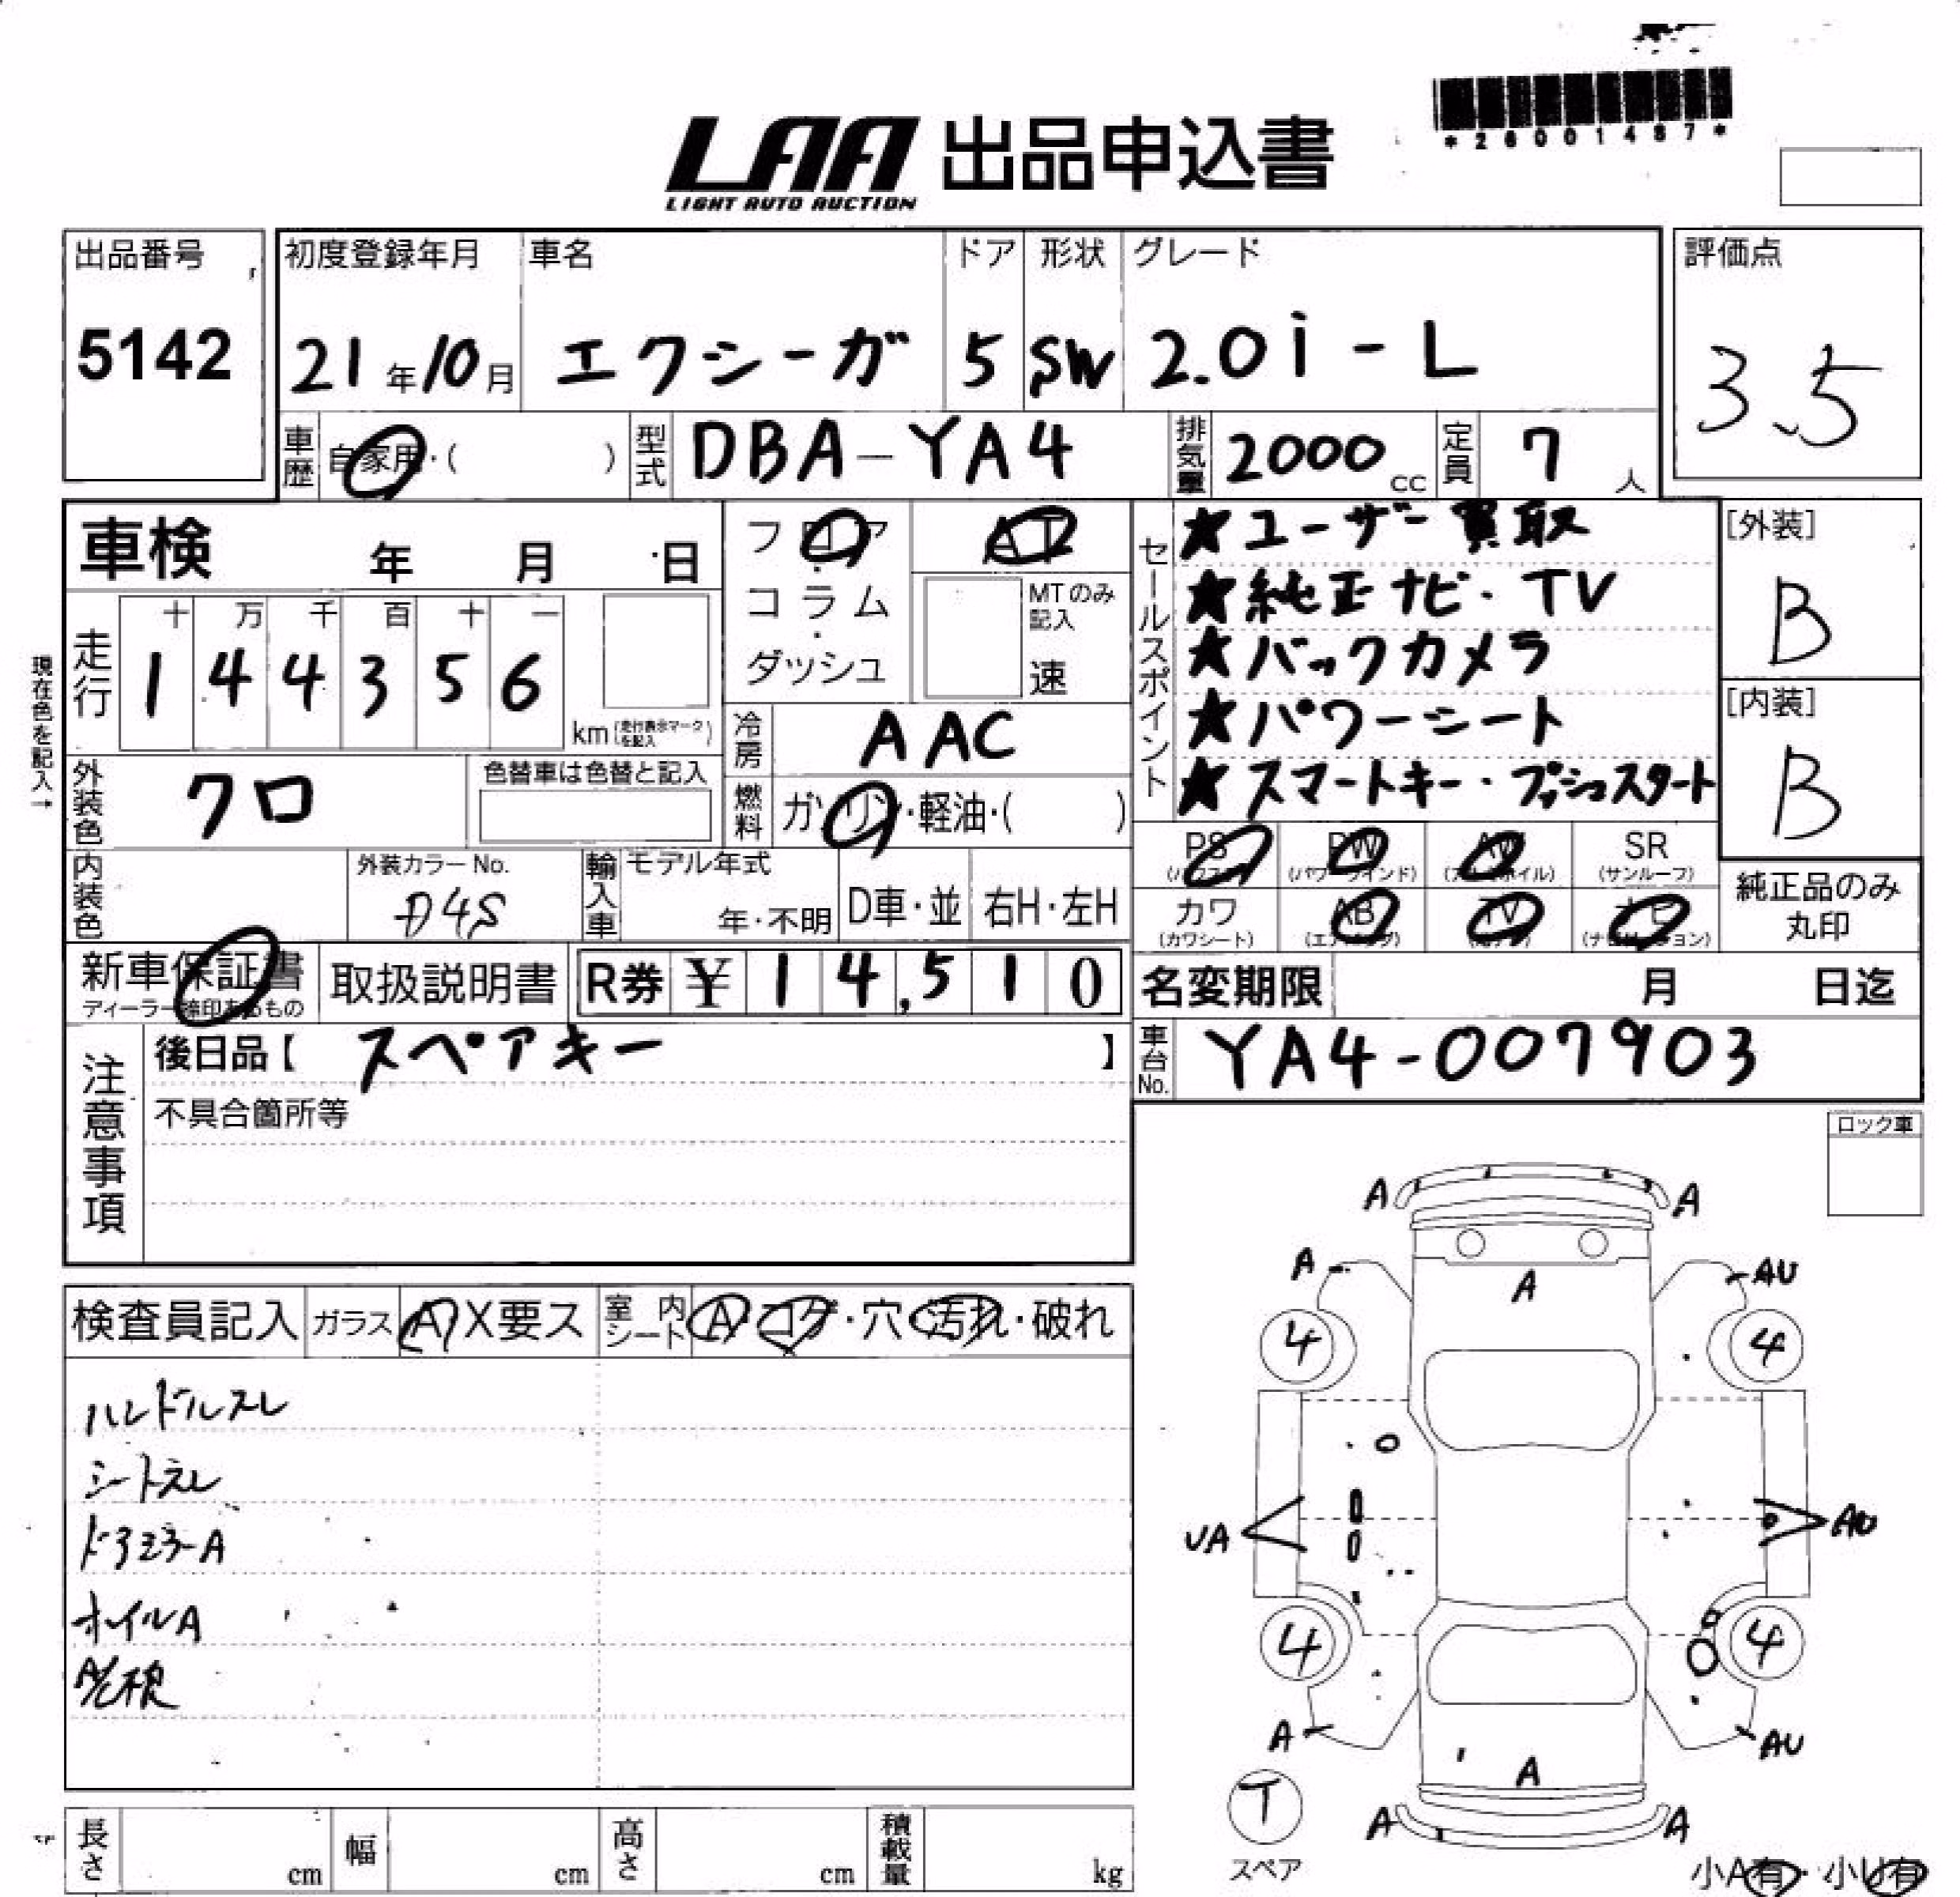 *26001487*
LAA 出品申込書
LIGHT AUTO AUCTION
出品番号 初度登録年月 車名 ドア 形状 グレード 評価点
5142 21年10月 エクシーガ 5 SW 2.0i-L 3.5
車歴 自家用・( ) 型式 DBA-YA4 排気量 2000cc 定員 7人
車検 年 月 日
フロア・コラム・ダッシュ
AT
MTのみ記入
速
セールスポイント
★ユーザー買取
★純正ナビ・TV
★バックカメラ
★パワーシート
★スマートキー・プッシュスタート
[外装]
B
[内装]
B
現在色を記入→
走行 十 万 千 百 十 一
1 4 4 3 5 6
km(走行表示マークを記入)
冷房 AAC
外装色 クロ 色替車は色替と記入
燃料 ガソリン・軽油・( )
PS(パワステ) PW(パワーウインド) AW(アルミホイル) SR(サンルーフ)
カワ(カワシート) AB(エアバッグ) TV(テレビ) ナビ(ナビゲーション)
純正品のみ丸印
内装色 外装カラーNo. D4S
輸入車 モデル年式 年・不明 D車・並 右H・左H
新車保証書 取扱説明書 R券 ¥ 14,510
ディーラー捺印あるもの
名変期限 月 日迄
車台No. YA4-007903
注意事項
後日品【 スペアキー 】
不具合箇所等
ロック車
検査員記入 ガラス A X要ス 室内シート A・コゲ・穴・汚れ・破れ
ハンドルスレ
シートスレ
ドアミラーA
ホイルA
A A
A AU
A
4 4
UA AU
4 4
A AU
A
T
スペア
A A
小A有・小U有
長さ cm 幅 cm 高さ cm 積載量 kg